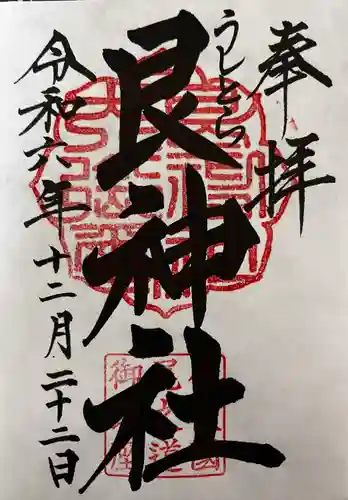 奉拝
うしとら
艮神社
令和六年十二月二十二日